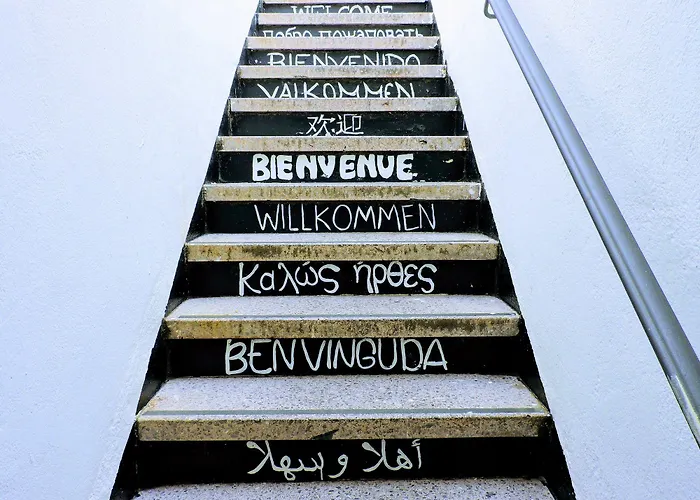 WELCOME
Добро пожаловать
BIENVENIDO
VALKOMMEN
欢迎
BIENVENUE
WILLKOMMEN
Καλώς ήρθες
BENVINGUDA
أهلا و سهلا